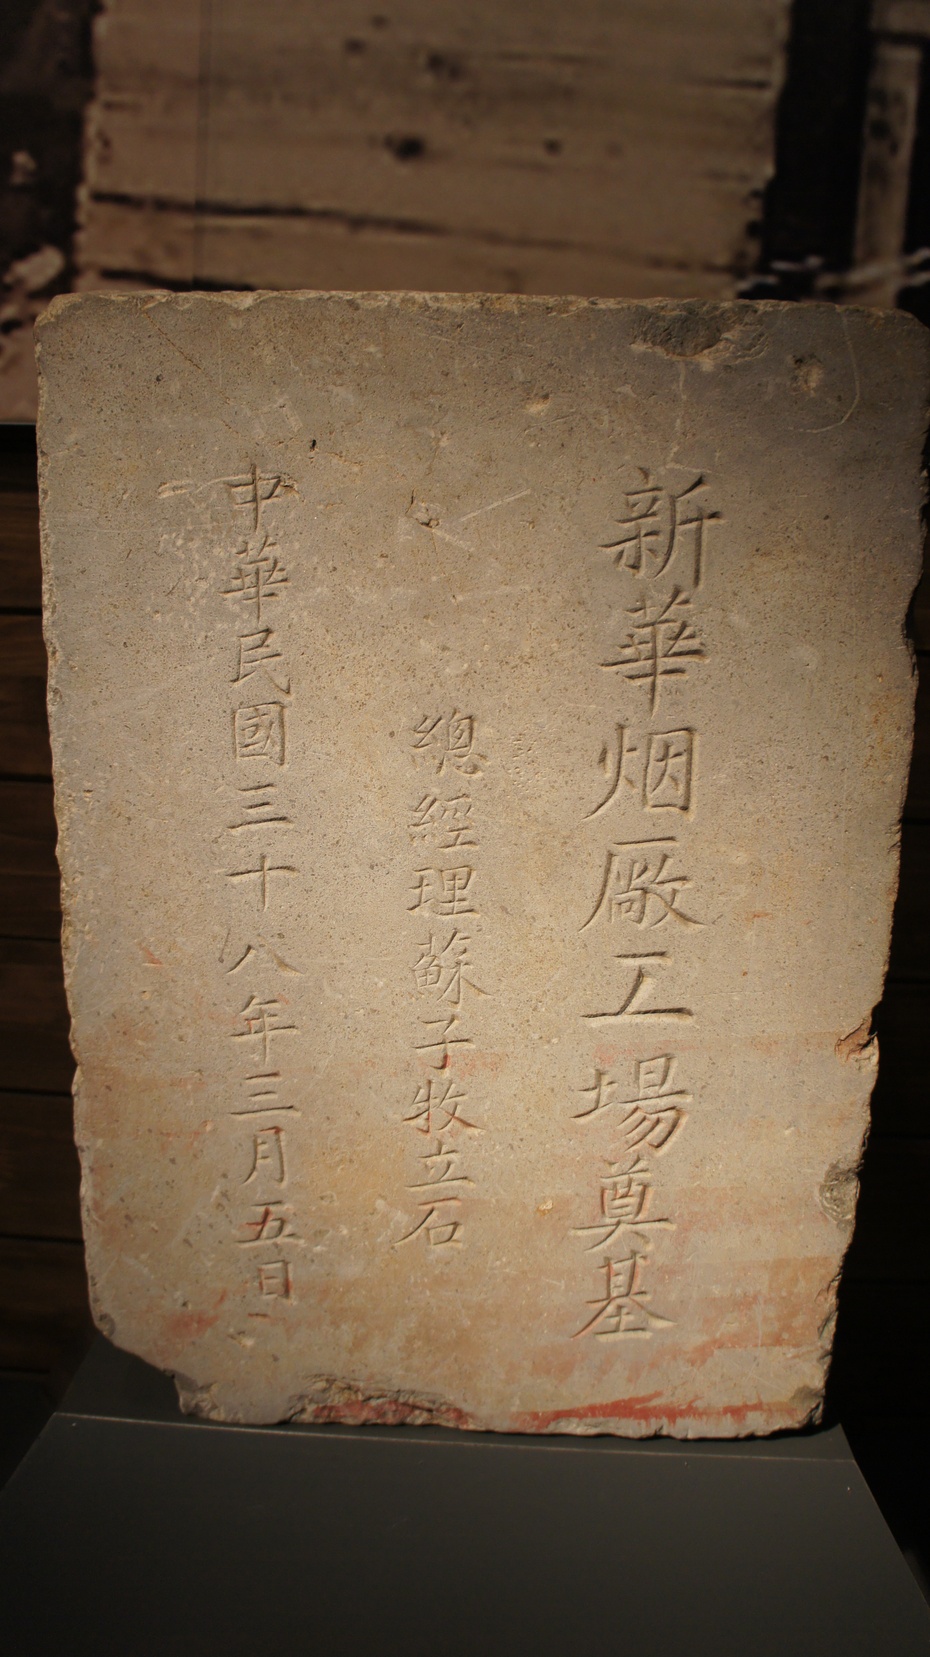 新華烟廠工場奠基
總經理蘇子牧立石
中華民國三十八年三月五日